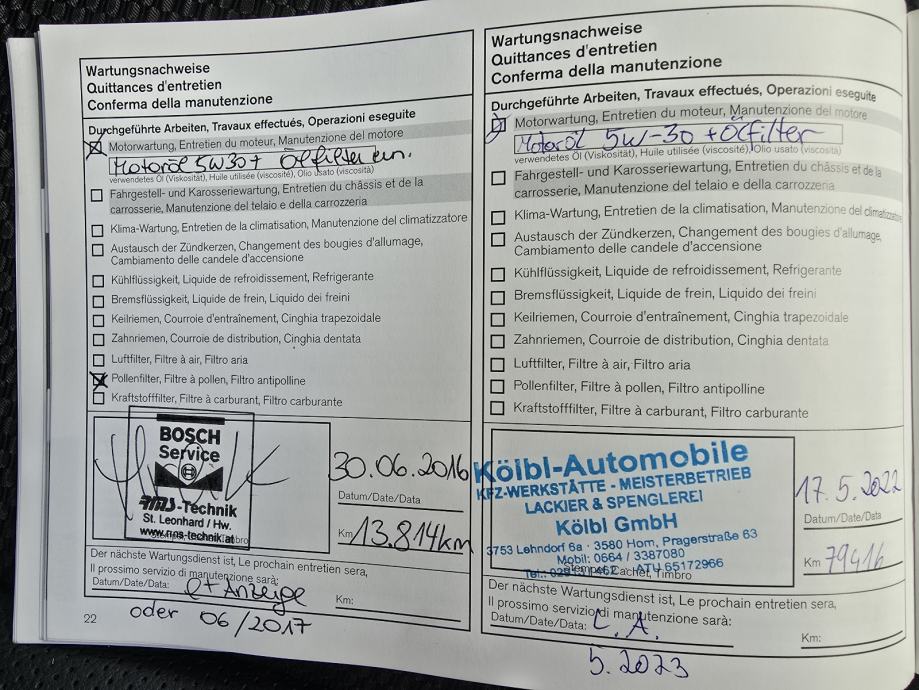 Wartungsnachweise
Quittances d'entretien
Conferma della manutenzione
Durchgeführte Arbeiten, Travaux effectués, Operazioni eseguite
Motorwartung, Entretien du moteur, Manutenzione del motore
Motoröl 5W30 + Ölfilter ern.
verwendetes Öl (Viskosität), Huile utilisée (viscosité), Olio usato (viscosità)
Fahrgestell- und Karosseriewartung, Entretien du châssis et de la
carrosserie, Manutenzione del telaio e della carrozzeria
Klima-Wartung, Entretien de la climatisation, Manutenzione del climatizzatore
Austausch der Zündkerzen, Changement des bougies d'allumage,
Cambiamento delle candele d'accensione
Kühlflüssigkeit, Liquide de refroidissement, Refrigerante
Bremsflüssigkeit, Liquide de frein, Liquido dei freini
Keilriemen, Courroie d'entraînement, Cinghia trapezoidale
Zahnriemen, Courroie de distribution, Cinghia dentata
Luftfilter, Filtre à air, Filtro aria
Pollenfilter, Filtre à pollen, Filtro antipolline
Kraftstofffilter, Filtre à carburant, Filtro carburante
BOSCH
Service
-Technik
St. Leonhard / Hw.
www.rms-technik.at
30.06.2016
Datum/Date/Data
Km 13.814km
Der nächste Wartungsdienst ist, Le prochain entretien sera,
Il prossimo servizio di manutenzione sarà:
Datum/Date/Data: Anzeige Km:
oder 06/2017
22
Wartungsnachweise
Quittances d'entretien
Conferma della manutenzione
Durchgeführte Arbeiten, Travaux effectués, Operazioni eseguite
Motorwartung, Entretien du moteur, Manutenzione del motore
Motoröl 5W-30 + Ölfilter
verwendetes Öl (Viskosität), Huile utilisée (viscosité), Olio usato (viscosità)
Fahrgestell- und Karosseriewartung, Entretien du châssis et de la
carrosserie, Manutenzione del telaio e della carrozzeria
Klima-Wartung, Entretien de la climatisation, Manutenzione del climatizzatore
Austausch der Zündkerzen, Changement des bougies d'allumage,
Cambiamento delle candele d'accensione
Kühlflüssigkeit, Liquide de refroidissement, Refrigerante
Bremsflüssigkeit, Liquide de frein, Liquido dei freini
Keilriemen, Courroie d'entraînement, Cinghia trapezoidale
Zahnriemen, Courroie de distribution, Cinghia dentata
Luftfilter, Filtre à air, Filtro aria
Pollenfilter, Filtre à pollen, Filtro antipolline
Kraftstofffilter, Filtre à carburant, Filtro carburante
Kölbl-Automobile
KFZ-WERKSTÄTTE - MEISTERBETRIEB
LACKIER & SPENGLEREI
Kölbl GmbH
3753 Lehndorf 6a · 3580 Horn, Pragerstraße 63
Mobil: 0664 / 3387080
Cachet, Timbro ATU 65172966
17.5.2022
Datum/Date/Data
Km 79416
Der nächste Wartungsdienst ist, Le prochain entretien sera,
Il prossimo servizio di manutenzione sarà:
Datum/Date/Data: L.A. Km:
5.2023